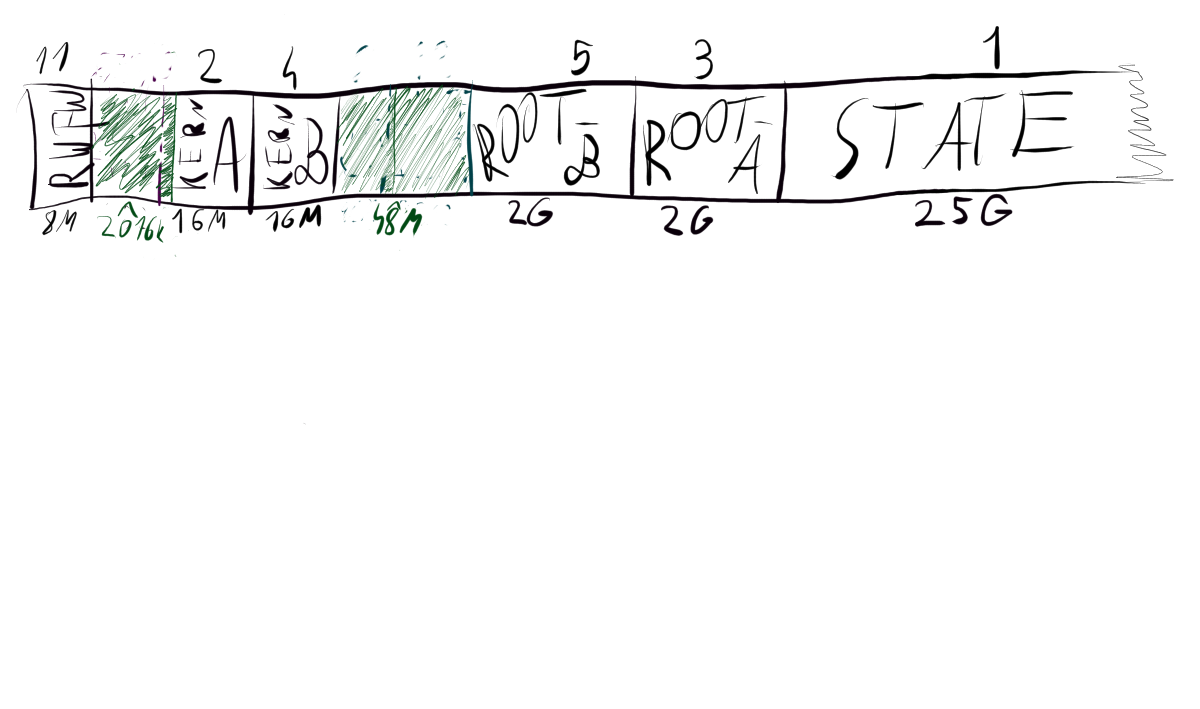 11 2 4 5 3 1
RWFW KERN A KERN B ROOT-B ROOT-A STATE
8M 2016k 16M 16M 48M 2G 2G 25G